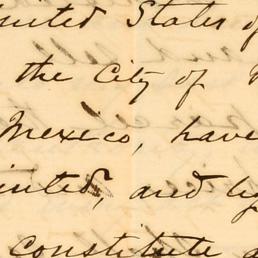 United States of
the City of
Mexico, have
inted, and by
constitute a